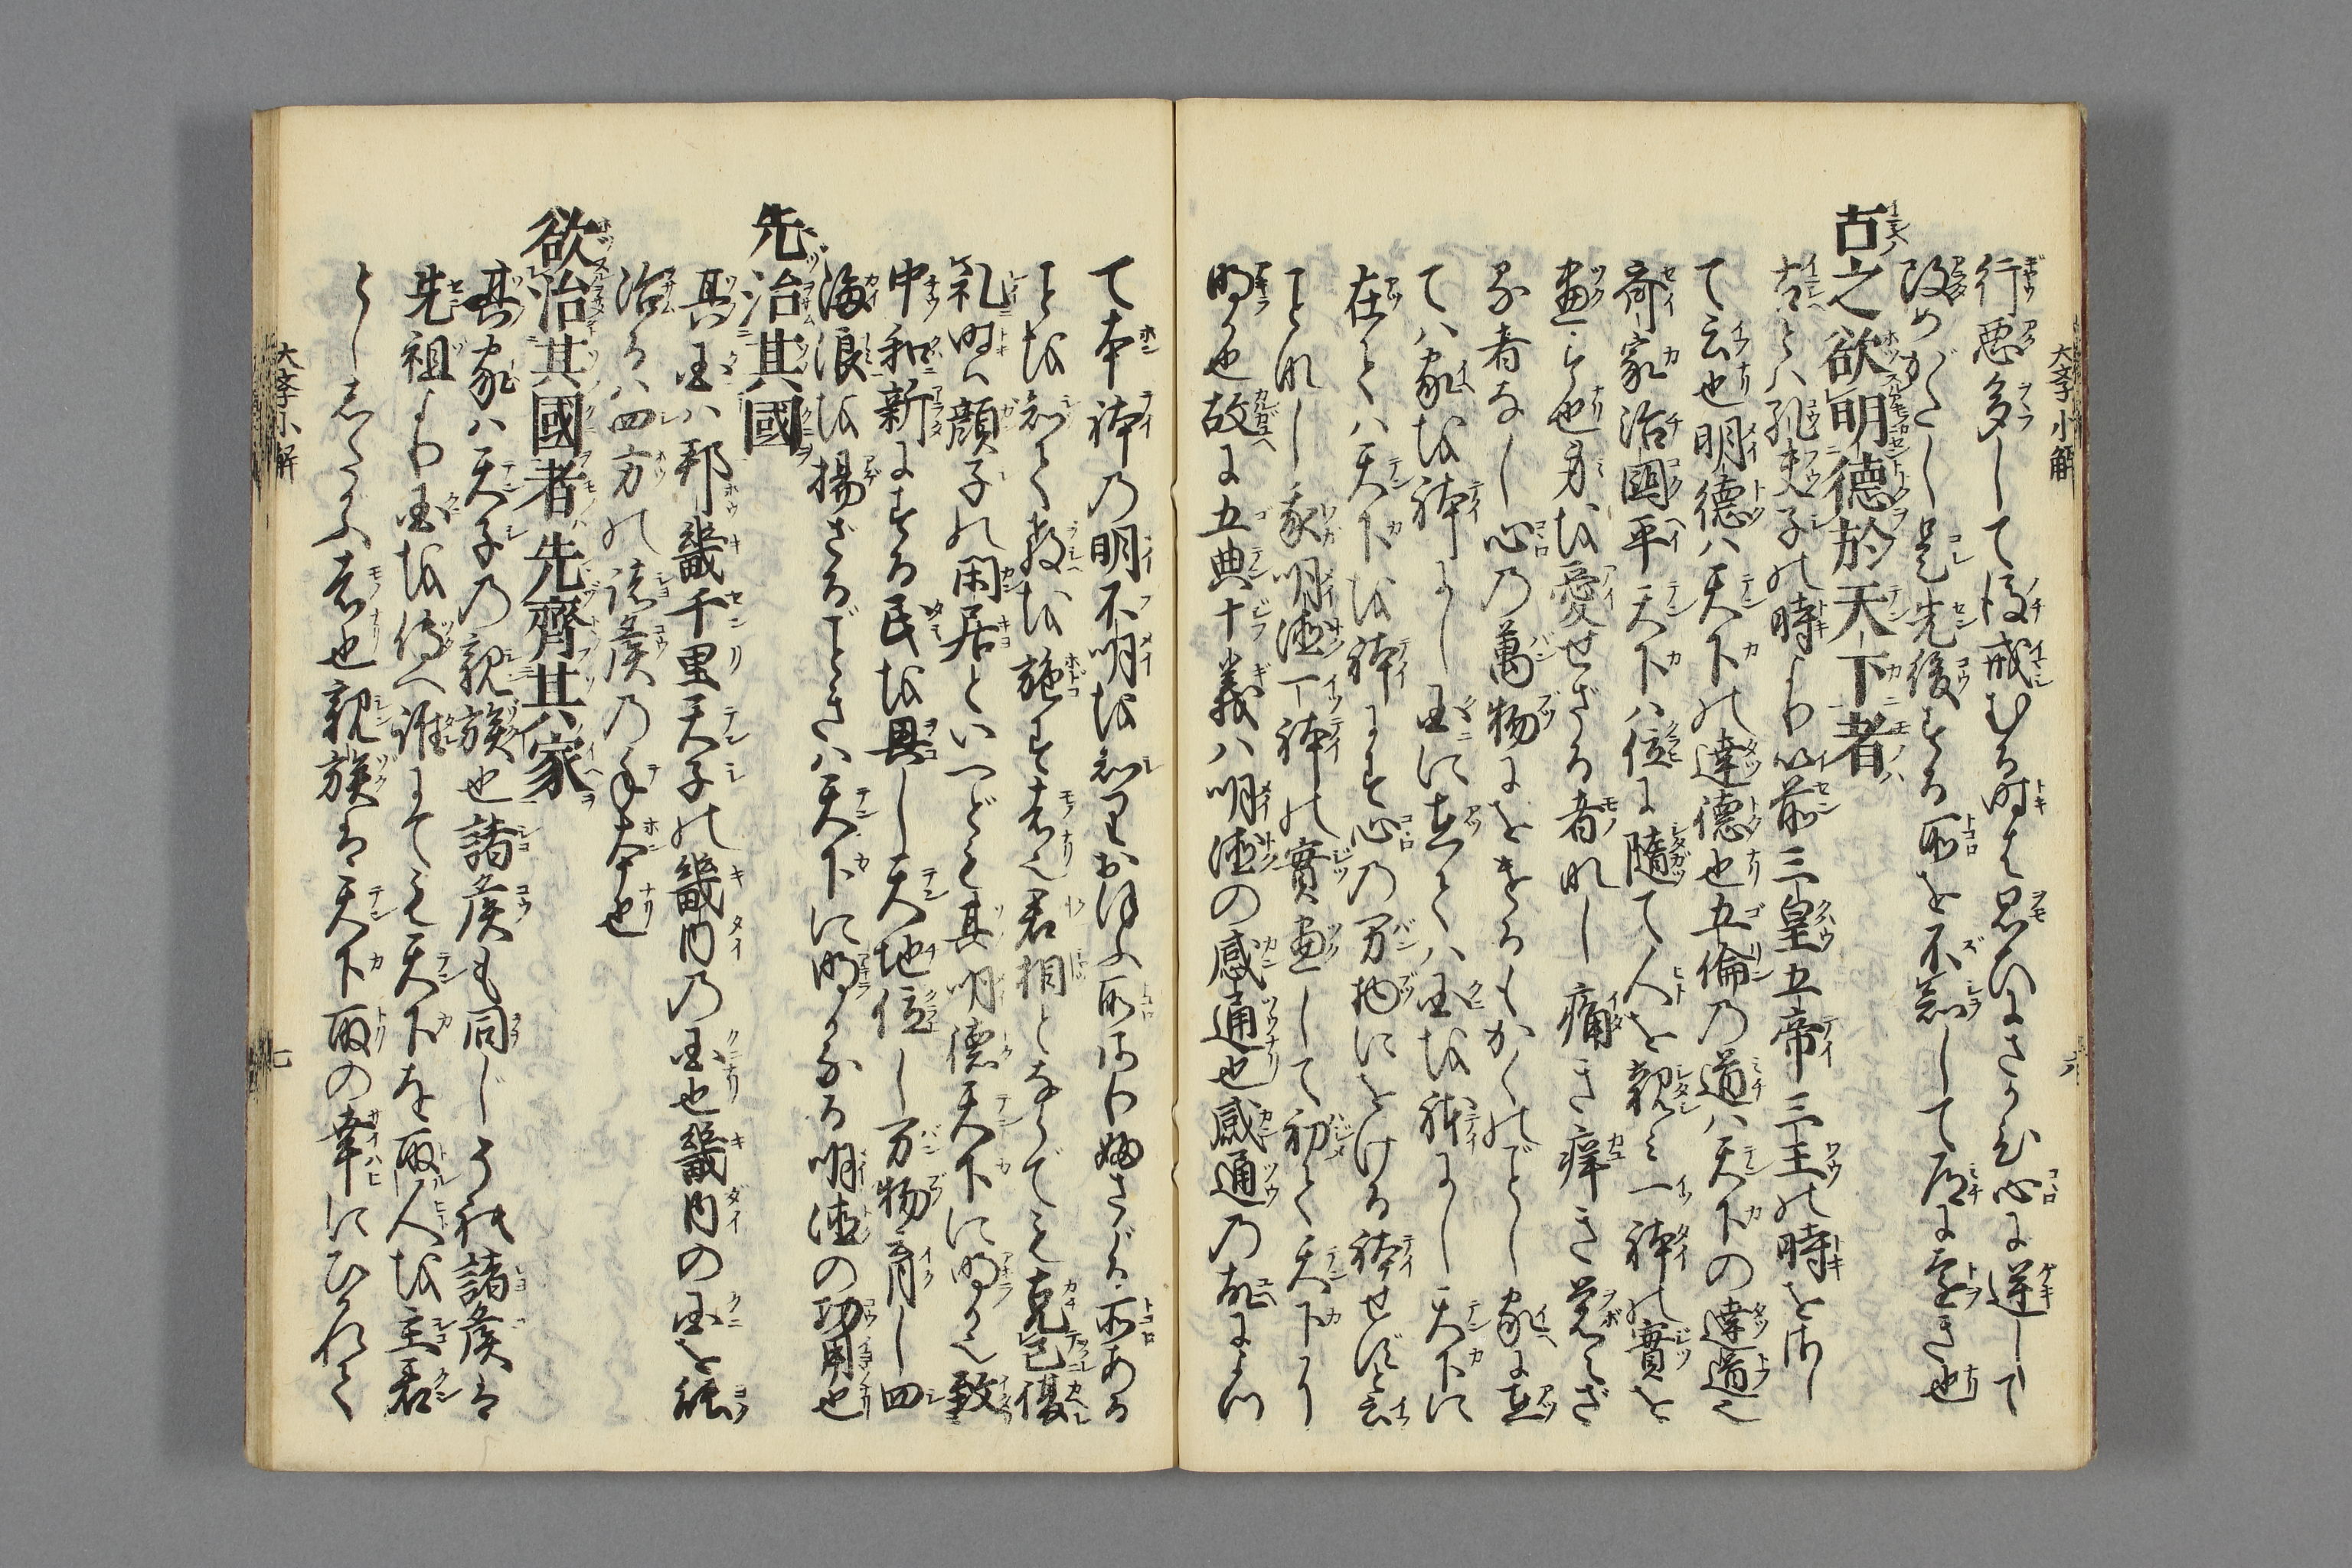 大学小解
六
行悪多して後戒むる時は思ひまさかひ心に逆して
改めがたし是先後する所を不知して道に遠き也
古之欲明德於天下者
古とハ孔夫子の時より以前三皇五帝三王の時をさし
て云也明德ハ天下の達德也五倫の道ハ天下の達道也
齊家治國平天下ハ位に隨て人を親み一体の實を
盡す也身を愛せざる者なし痛き痒き覚えざ
る者なし心の萬物にをけるもかくのごとし家に在
てハ家を体にし国に在てハ国を体にし天下に
在てハ天下を体にす心の万物にをける体せずと云
ことなし我明徳一体の實盡して初て天下に
明か也故に五典十義ハ明徳の感通也感通の故によつ
て本体の明不明を知りおほふ所ありふさがる所ある
ことを知て教を施す者也君相となつても克己復
礼時ハ顔子の閑居といへども其明德天下に明か也致
中和新にする民を興し天地位し万物育し四
海浪を揚ざるごときハ天下に明かなる明徳の功用也
先治其國
其国ハ邦畿千里天子の畿内の国也畿内の国を能
治るハ四方の諸侯の手本也
欲治其國者先齊其家
其家ハ天子の親族也諸侯も同じうの諸侯は
先祖より国を傳へ誰にても天下を取人を主君
としたがふ者也親族は天下取の幸にひかれて
大学小解
七